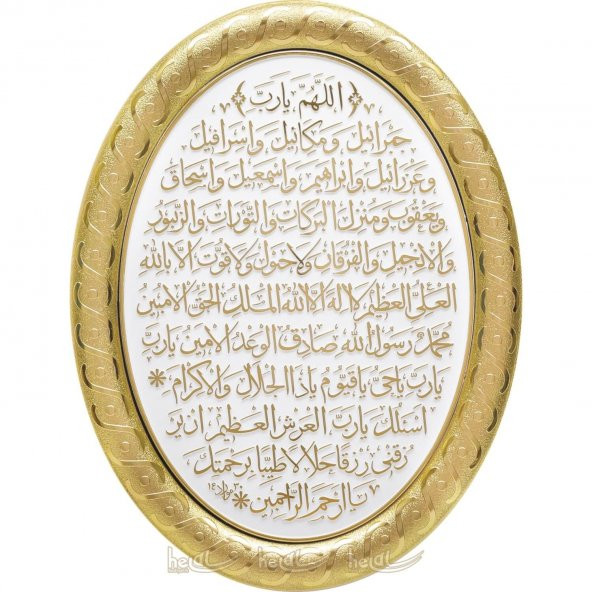 اللهم يارب
جبرائيل وميكائيل واسرافيل
وعزرائيل وابراهيم واسمعيل واسحاق
ويعقوب ومنزل البركات والتورات والزبور
والانجيل والفرقان ولاحول ولاقوت الا بالله
العلى العظيم لا اله الا الله الملك الحق المبين
محمد رسول الله صادق الوعد الامين يارب
يارب ياحى ياقيوم ياذا الجلال والاكرام
اسئلك يارب العرش العظيم ان ير
زقنى رزقا حلالا طيبا برحمتك
يا ارحم الراحمين
heal heal heal